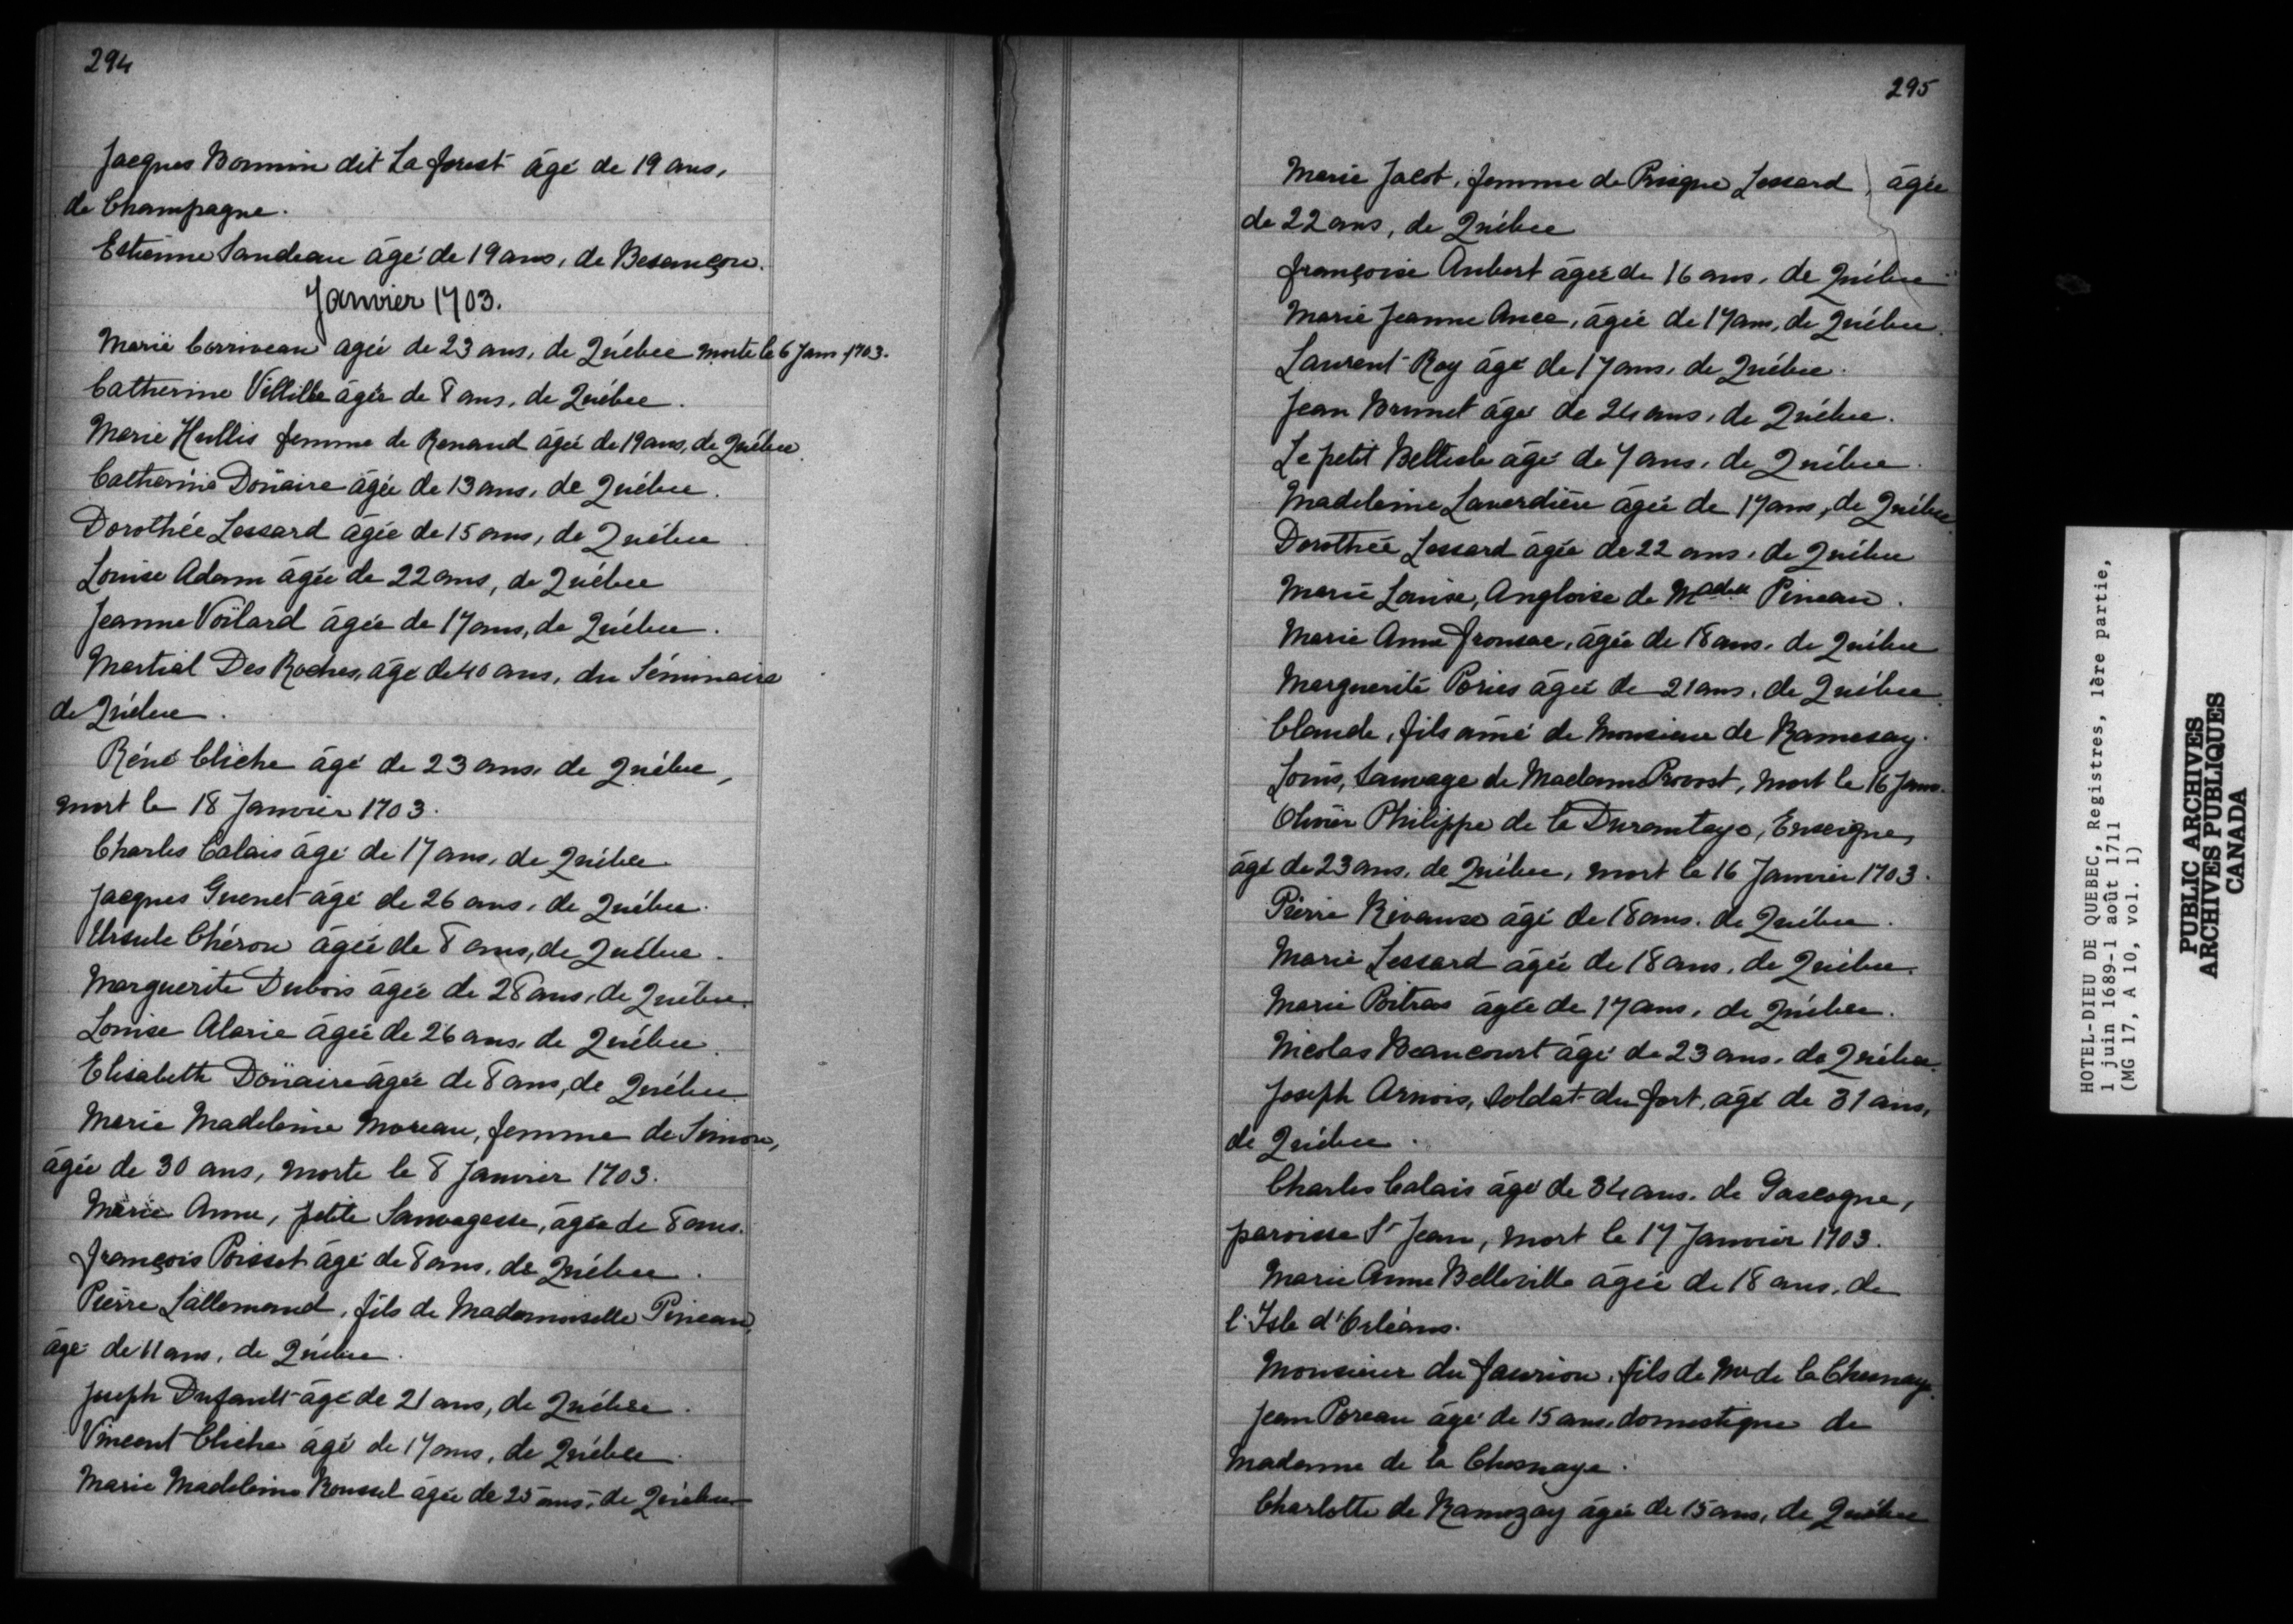 294
Jacques Bonnin dit La forest âgé de 19 ans,
de Champagne.
Estienne Sandeau âgé de 19 ans, de Besançon.
Janvier 1703.
Marie Corriveau agée de 23 ans, de Québec morte le 6 Janv. 1703.
Catherine Villille âgée de 8 ans, de Québec.
Marie Hullis femme de Renaud âgée de 19 ans, de Québec.
Catherine Doüaire âgée de 13 ans, de Québec.
Dorothée Lessard âgée de 15 ans, de Québec
Louise Adam âgée de 22 ans, de Québec
Jeanne Voilard âgée de 17 ans, de Québec.
Martial Des Roches, âgé de 40 ans, du Séminaire
de Québec.
Réné Cliche âgé de 23 ans, de Québec,
mort le 18 Janvier 1703.
Charles Calais âgé de 17 ans, de Québec.
Jacques Guenet âgé de 26 ans, de Québec.
Ursule Chéron âgée de 8 ans, de Québec.
Marguerite Dubois âgée de 28 ans, de Québec.
Louise Alarie âgée de 26 ans, de Québec.
Elisabeth Doüaire âgée de 8 ans, de Québec.
Marie Madeleine Moreau, femme de Simon,
âgée de 30 ans, morte le 8 Janvier 1703.
Marie Anne, petite Sauvagesse, âgée de 8 ans.
François Poisset âgé de 8 ans, de Québec.
Pierre Lallemand, fils de Mademoiselle Pineau,
âgé de 11 ans, de Québec.
Joseph Dufault âgé de 21 ans, de Québec.
Vincent Cliche âgé de 17 ans, de Québec.
Marie Madeleine Roussel âgée de 25 ans, de Québec
295
Marie Jacob, femme de Prisque Lessard, âgée
de 22 ans, de Québec
Françoise Aubert âgée de 16 ans, de Québec
Marie Jeanne Ance, âgée de 17 ans, de Québec.
Laurent Roy âgé de 17 ans, de Québec.
Jean Brunet âgé de 24 ans, de Québec.
Le petit Bellisle âgé de 7 ans, de Québec.
Madeleine Laverdière âgée de 17 ans, de Québec
Dorothée Lessard âgée de 22 ans, de Québec
Marie Louise, Angloise de Madelle Pineau.
Marie Anne Fronsac, âgée de 18 ans, de Québec
Marguerite Pories âgée de 21 ans, de Québec.
Claude, fils ainé de Monsieur de Ramesay.
Louis, Sauvage de Madame Provost, mort le 16 Janv.
Olivier Philippe de la Durantaye, Enseigne,
âgé de 23 ans, de Québec, mort le 16 Janvier 1703.
Pierre Rivaux âgé de 18 ans, de Québec.
Marie Lessard âgée de 18 ans, de Québec.
Marie Poitras âgée de 17 ans, de Québec.
Nicolas Beaucourt âgé de 23 ans, de Québec.
Joseph Arnois, Soldat du fort, âgé de 31 ans,
de Québec.
Charles Calais âgé de 34 ans, de Gascogne,
paroisse St Jean, mort le 17 Janvier 1703.
Marie Anne Belleville âgée de 18 ans, de
l'Isle d'Orléans.
Monsieur du Faurion, fils de Mr de la Chesnaye.
Jean Poreau âgé de 15 ans, domestique de
Madame de la Chesnaye.
Charlotte de Ramezay âgée de 15 ans, de Québec
HOTEL-DIEU DE QUEBEC, Registres, 1ère partie,
1 juin 1689-1 août 1711
(MG 17, A 10, vol. 1)
PUBLIC ARCHIVES
ARCHIVES PUBLIQUES
CANADA